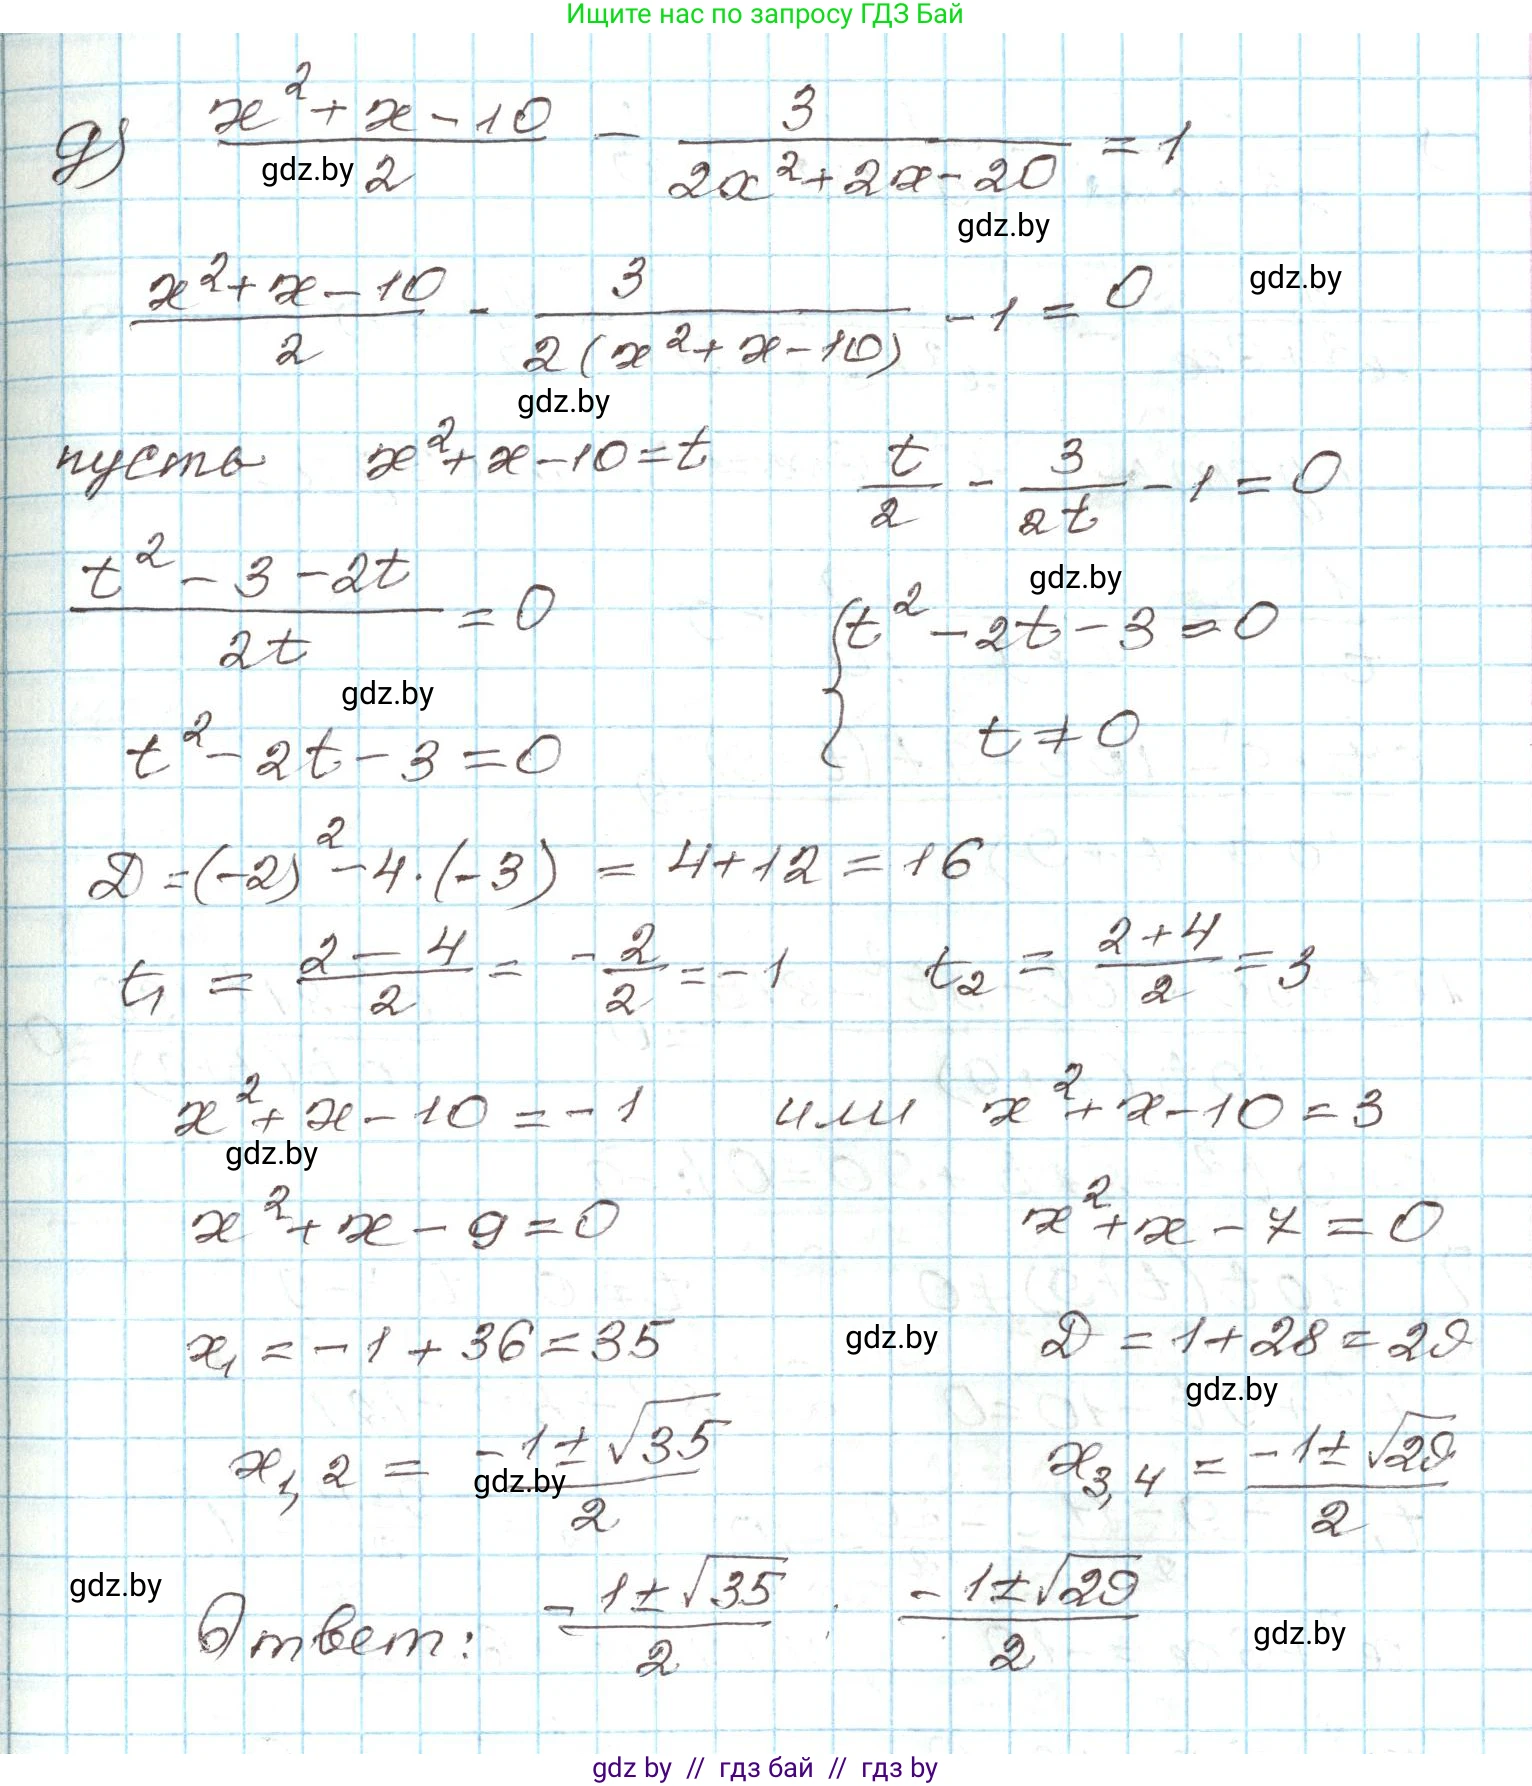 Ищите нас по запросу ГДЗ Бай
д) (x² + x - 10)/2 - 3/(2x² + 2x - 20) = 1
gdz.by
gdz.by
(x² + x - 10)/2 - 3/(2(x² + x - 10)) - 1 = 0
gdz.by
gdz.by
пусть x² + x - 10 = t t/2 - 3/(2t) - 1 = 0
gdz.by
(t² - 3 - 2t)/(2t) = 0 { t² - 2t - 3 = 0
gdz.by
t² - 2t - 3 = 0 t ≠ 0
D = (-2)² - 4 · (-3) = 4 + 12 = 16
t₁ = (2 - 4)/2 = -2/2 = -1 t₂ = (2 + 4)/2 = 3
x² + x - 10 = -1 или x² + x - 10 = 3
gdz.by
x² + x - 9 = 0 x² + x - 7 = 0
x₁ = -1 + 36 = 35 gdz.by D = 1 + 28 = 29
gdz.by
x₁,₂ = (-1 ± √35)/2 x₃,₄ = (-1 ± √29)/2
gdz.by
gdz.by
Ответ: (-1 ± √35)/2 ; (-1 ± √29)/2
gdz.by
gdz by // гдз бай // гдз by